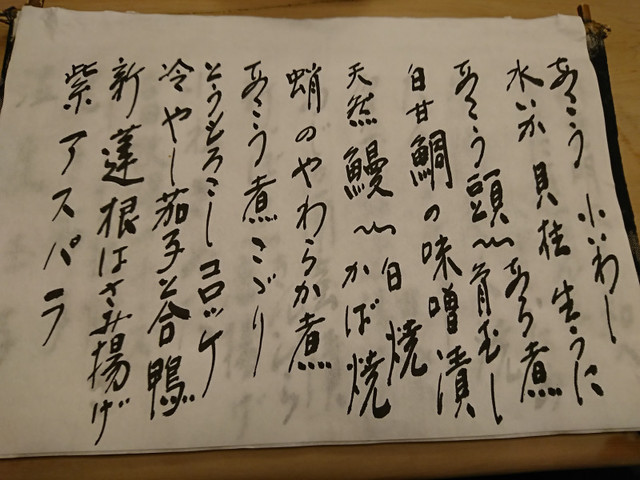 あこう 小いわし
水いか 貝柱 生うに
あこう頭〜骨むし あら煮
白甘鯛の味噌漬
天然鰻〜白焼 かば焼
蛸のやわらか煮
あこう煮こごり
とうもろこしコロッケ
冷やし茄子と合鴨
新蓮根はさみ揚げ
紫アスパラ